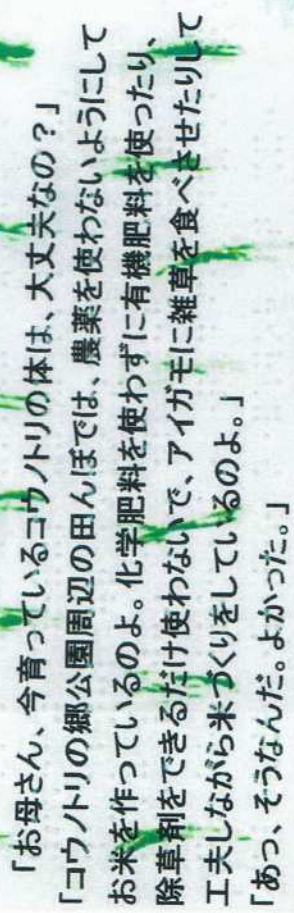 「お母さん、今育っているコウノトリの体は、大丈夫なの？」
「コウノトリの郷公園周辺の田んぼでは、農薬を使わないようにして
お米を作っているのよ。化学肥料を使わずに有機肥料を使ったり、
除草剤をできるだけ使わないで、アイガモに雑草を食べさせたりして
工夫しながら米づくりをしているのよ。」
「あっ、そうなんだ。よかった。」